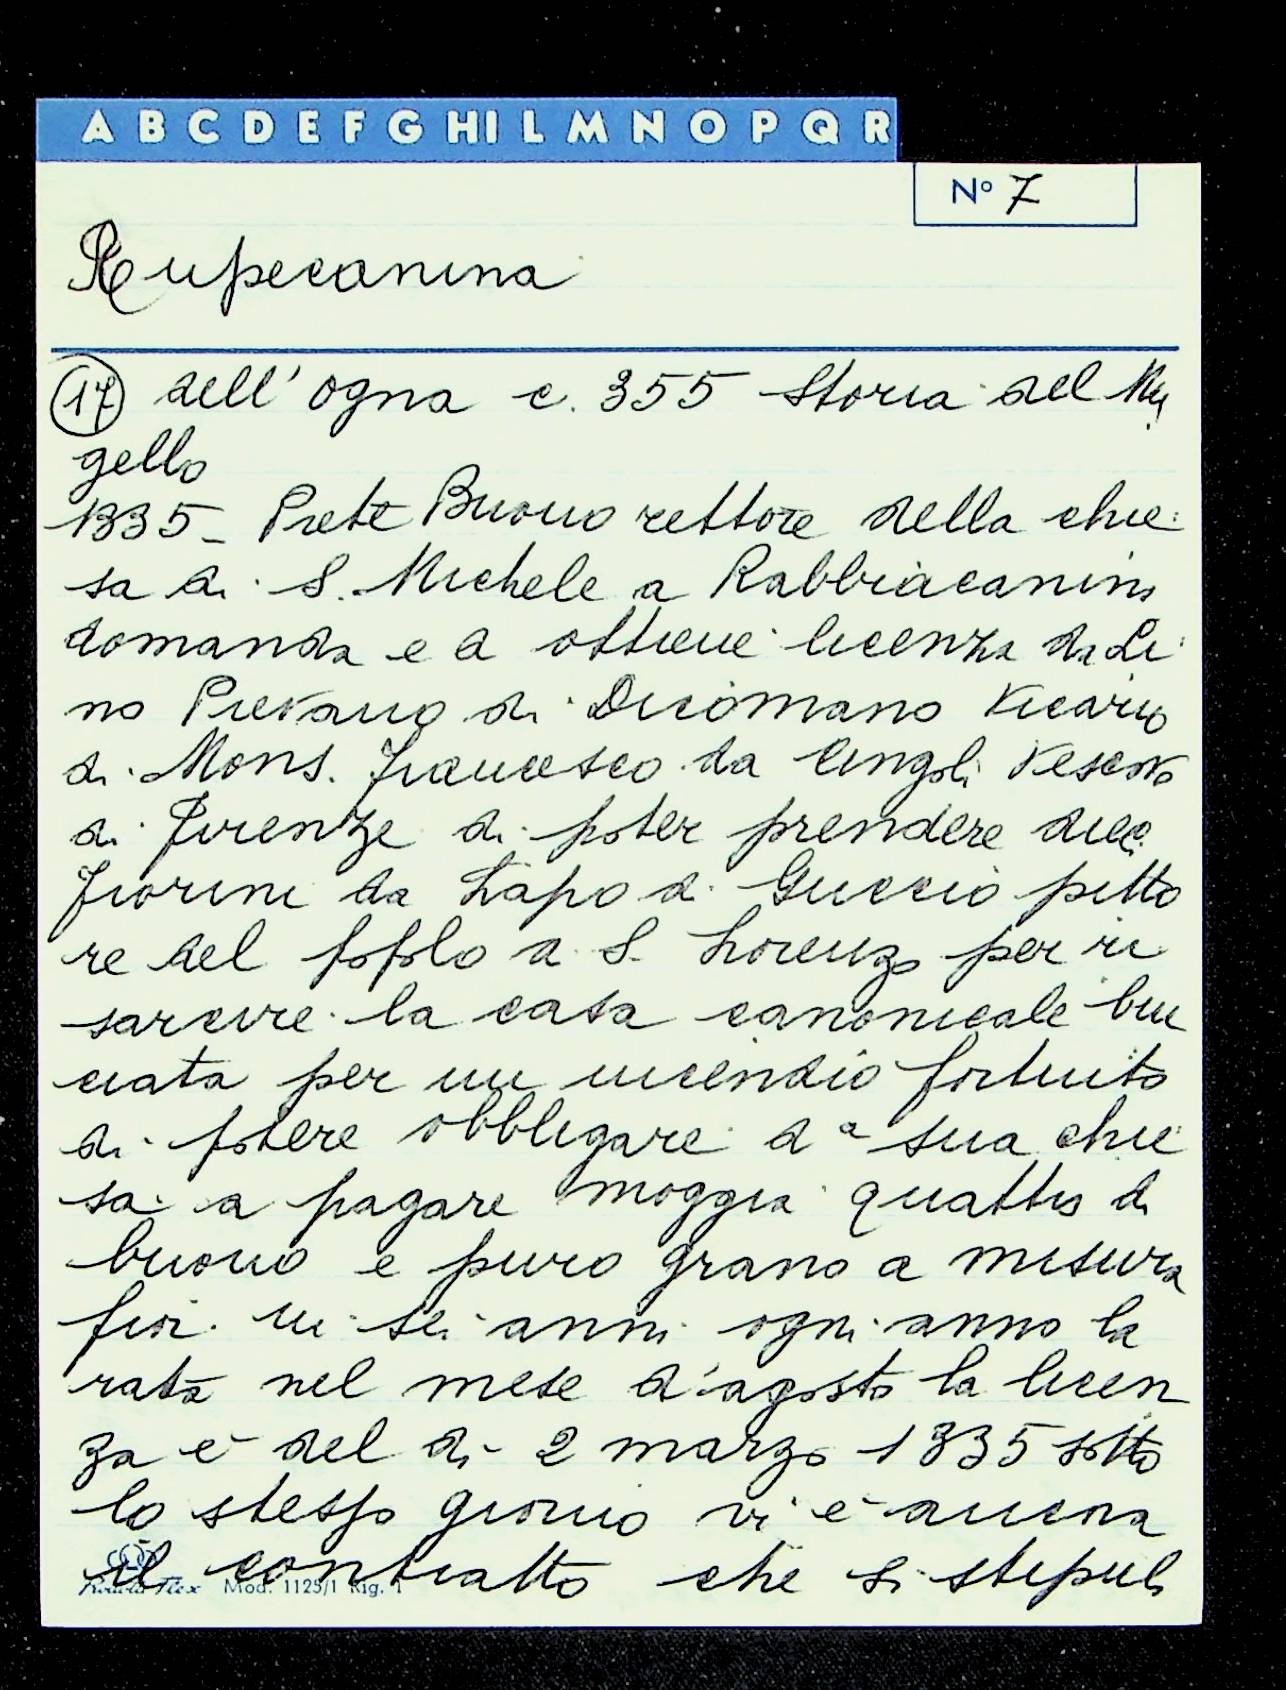 A B C D E F G HI L M N O P Q R
N° 7
Rupecanina
17 dell'Ogna c. 355 Storia del Mu
gello
1335 - Prete Buono rettore della chie
sa di S. Michele a Rabbiacanina
domanda e d ottiene licenza da Li
no Pievano di Dicomano Vicario
di Mons. Francesco da Cingoli Vescovo
di Firenze di poter prendere dieci
fiorini da Lapo di Guccio pitto
re del popolo a S. Lorenzo per ri
sarcire la casa canonicale bru
ciata per un incendio fortuito
di potere obbligare da sua chie
sa a pagare moggia quattro di
buono e puro grano a misura
fior. in sei anni ogni anno la
rata nel mese d'agosto la licen
za è del di 2 marzo 1335 sotto
lo stesso giorno vi è ancora
il contratto che si stipulò
Mod. 1125/1 Rig. 1